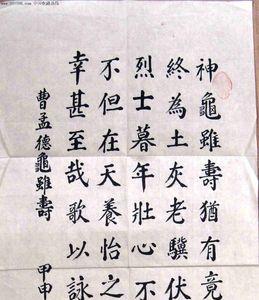 神龜雖壽猶有竟
終為土灰老驥伏
烈士暮年壯心不
不但在天養怡之
幸甚至哉歌以詠
曹孟德龜雖壽 甲申